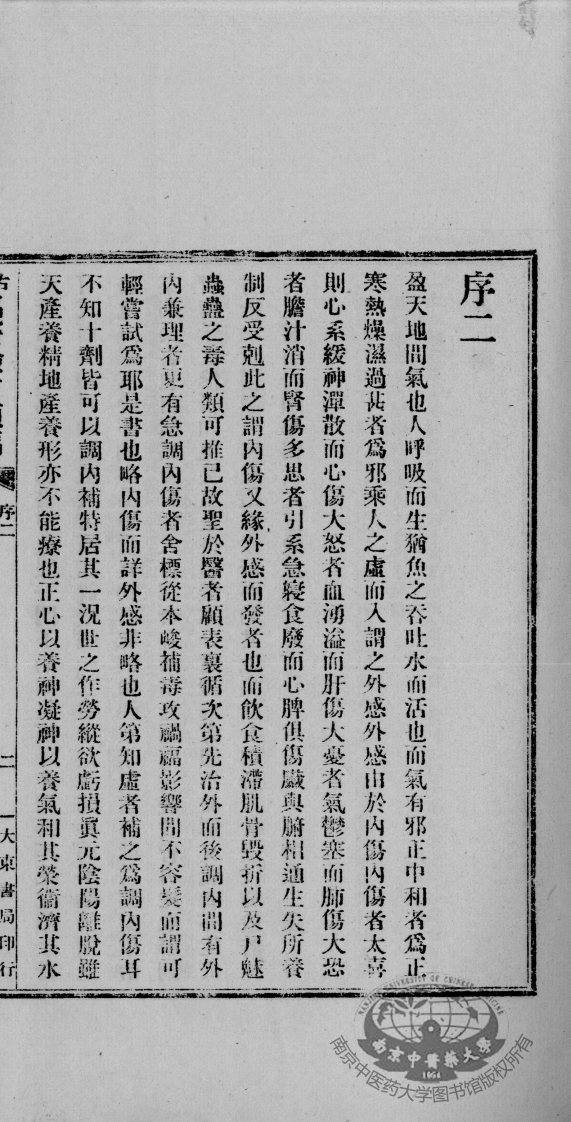 序二
盈天地間氣也人呼吸而生猶魚之吞吐水而活也而氣有邪正中和者爲正
寒熱燥濕過甚者爲邪乘人之虛而入謂之外感外感由於內傷內傷者太喜
則心系緩神潬散而心傷大怒者血湧溢而肝傷大憂者氣鬱塞而肺傷大恐
者膽汁消而腎傷多思者引系急寢食廢而心脾俱傷臟與腑相通生失所養
制反受剋此之謂內傷又緣外感而發者也而飲食積滯肌骨毀折以及尸魅
蟲蠱之毒人類可推已故聖於醫者顧表裏循次第先治外而後調內間有外
內兼理者更有急調內傷者舍標從本峻補毒攻禍福影響間不容髮而謂可
輕嘗試爲耶是書也略內傷而詳外感非略也人第知虛者補之爲調內傷耳
不知十劑皆可以調內補特居其一況世之作勞縱欲虧損眞元陰陽離脫雖
天產養精地產養形亦不能療也正心以養神凝神以養氣和其榮衞濟其水
序二
二
大東書局印行
南京中醫藥大學
1954
NANJING UNIVERSITY OF CHINESE MEDICINE
南京中医药大学图书馆版权所有